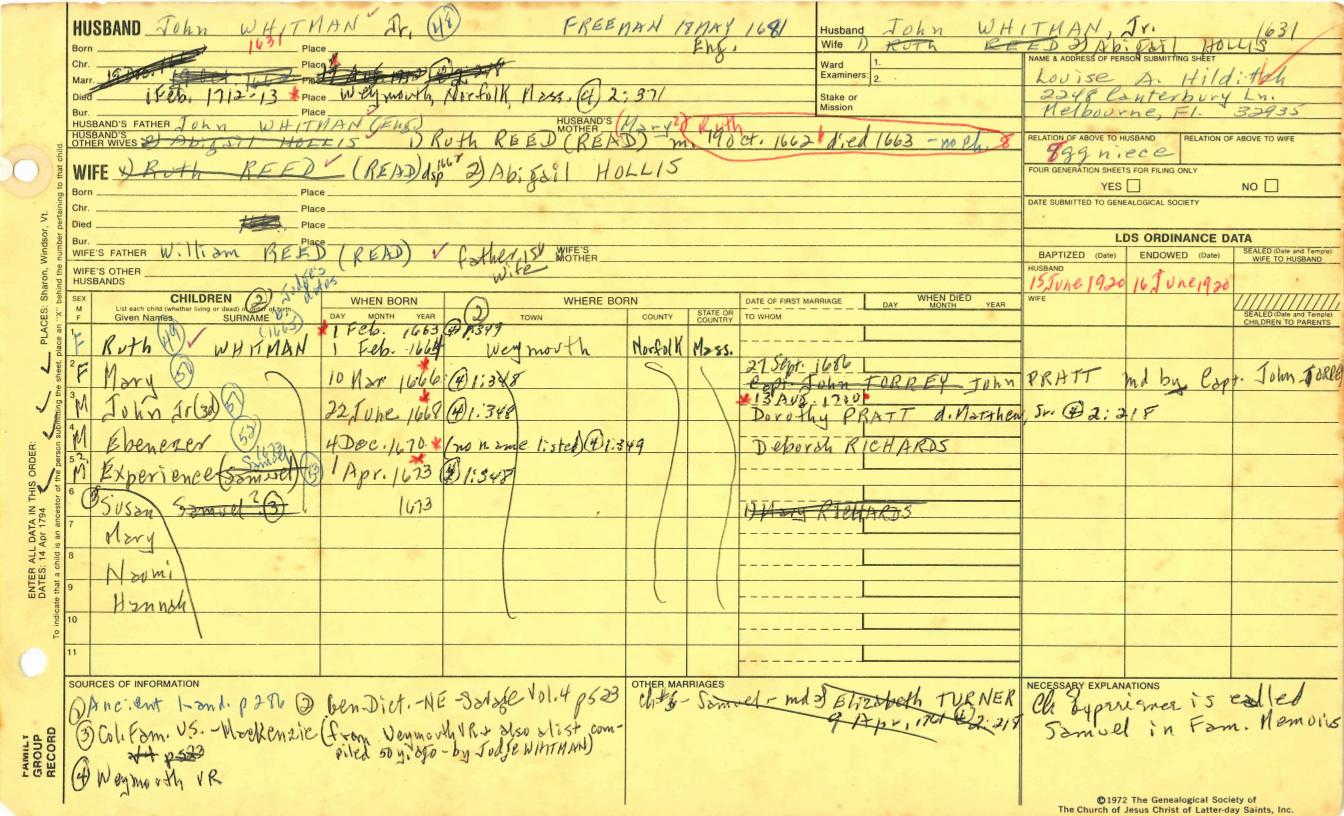 HUSBAND John WHITMAN Jr. 48 FREEMAN 18 MAY 1681
Born 1631 Place Eng.
Chr. Place
Marr. Place
Died 1 Feb. 1712-13 Place Weymouth, Norfolk, Mass. (4) 2:371
Bur. Place
HUSBAND'S FATHER John WHITMAN (Eng) HUSBAND'S MOTHER (Mary?) Ruth
HUSBAND'S OTHER WIVES 2) Abigail HOLLIS 1) Ruth REED (READ) m. 19 Oct. 1662 died 1663 - no ch. 8
WIFE 1) Ruth REED (READ) dsp 2) Abigail HOLLIS
Born Place
Chr. Place
Died Place
Bur. Place
WIFE'S FATHER William REED (READ) father 1st wife WIFE'S MOTHER
WIFE'S OTHER HUSBANDS
Husband John WHITMAN, Jr. 1631
Wife 1) RUTH REED 2) Abigail HOLLIS
Ward Examiners: 1.
2.
Stake or Mission
NAME & ADDRESS OF PERSON SUBMITTING SHEET
Louise A. Hilditch
2248 Canterbury Ln.
Melbourne, Fl. 32935
RELATION OF ABOVE TO HUSBAND RELATION OF ABOVE TO WIFE
8ggniece
FOUR GENERATION SHEETS FOR FILING ONLY
YES NO
DATE SUBMITTED TO GENEALOGICAL SOCIETY
LDS ORDINANCE DATA
BAPTIZED (Date) ENDOWED (Date) SEALED (Date and Temple) WIFE TO HUSBAND
HUSBAND
15 June 1920 16 June 1920
WIFE
SEALED (Date and Temple) CHILDREN TO PARENTS
SEX M F
CHILDREN (2) Judge's dates
List each child (whether living or dead) in order of birth
Given Names SURNAME (1663)
WHEN BORN
DAY MONTH YEAR
WHERE BORN (2)
TOWN COUNTY STATE OR COUNTRY
DATE OF FIRST MARRIAGE
TO WHOM
WHEN DIED
DAY MONTH YEAR
1 F Ruth WHITMAN 49 1 Feb. 1663 (4) 1:349
1 Feb. 1664 Weymouth Norfolk Mass.
27 Sept. 1686
2 F Mary 50 10 Mar 1666 (4) 1:348 Capt. John TORREY John PRATT md by Capt. John TORREY
13 Aug.
3 M John Jr (3d) 51 22 June 1668 (4) 1:348 Dorothy PRATT d. Matthew, Sr. (4) 2:218
4 M Ebenezer 52 4 Dec. 1670 (no name listed) (4) 1:349 Deborah RICHARDS
1673 Samuel
5 M Experience (Samuel) 53 1 Apr. 1673 (4) 1:348
6 (3) Susan Samuel? (3) 1673 1) Mary RICHARDS
7 Mary
8 Naomi
9 Hannah
10
11
SOURCES OF INFORMATION
(1) Ancient Land. p 286 (2) Gen. Dict.-NE-Savage Vol. 4 p 523
(3) Col. Fam. US. - Mackenzie (from Weymouth VR & also a list com-
p 523 piled 50 y. ago - by Judge WHITMAN)
(4) Weymouth VR
OTHER MARRIAGES
Ch #6 - Samuel - md 2) Elizabeth TURNER
9 Apr. (4) 2:218
NECESSARY EXPLANATIONS
Ch Experience is called
Samuel in Fam. Memoirs
©1972 The Genealogical Society of
The Church of Jesus Christ of Latter-day Saints, Inc.
ENTER ALL DATA IN THIS ORDER:
DATES: 14 Apr 1794 PLACES: Sharon, Windsor, Vt.
To indicate that a child is an ancestor of the person submitting the sheet, place an "X" behind the number pertaining to that child.
FAMILY GROUP RECORD